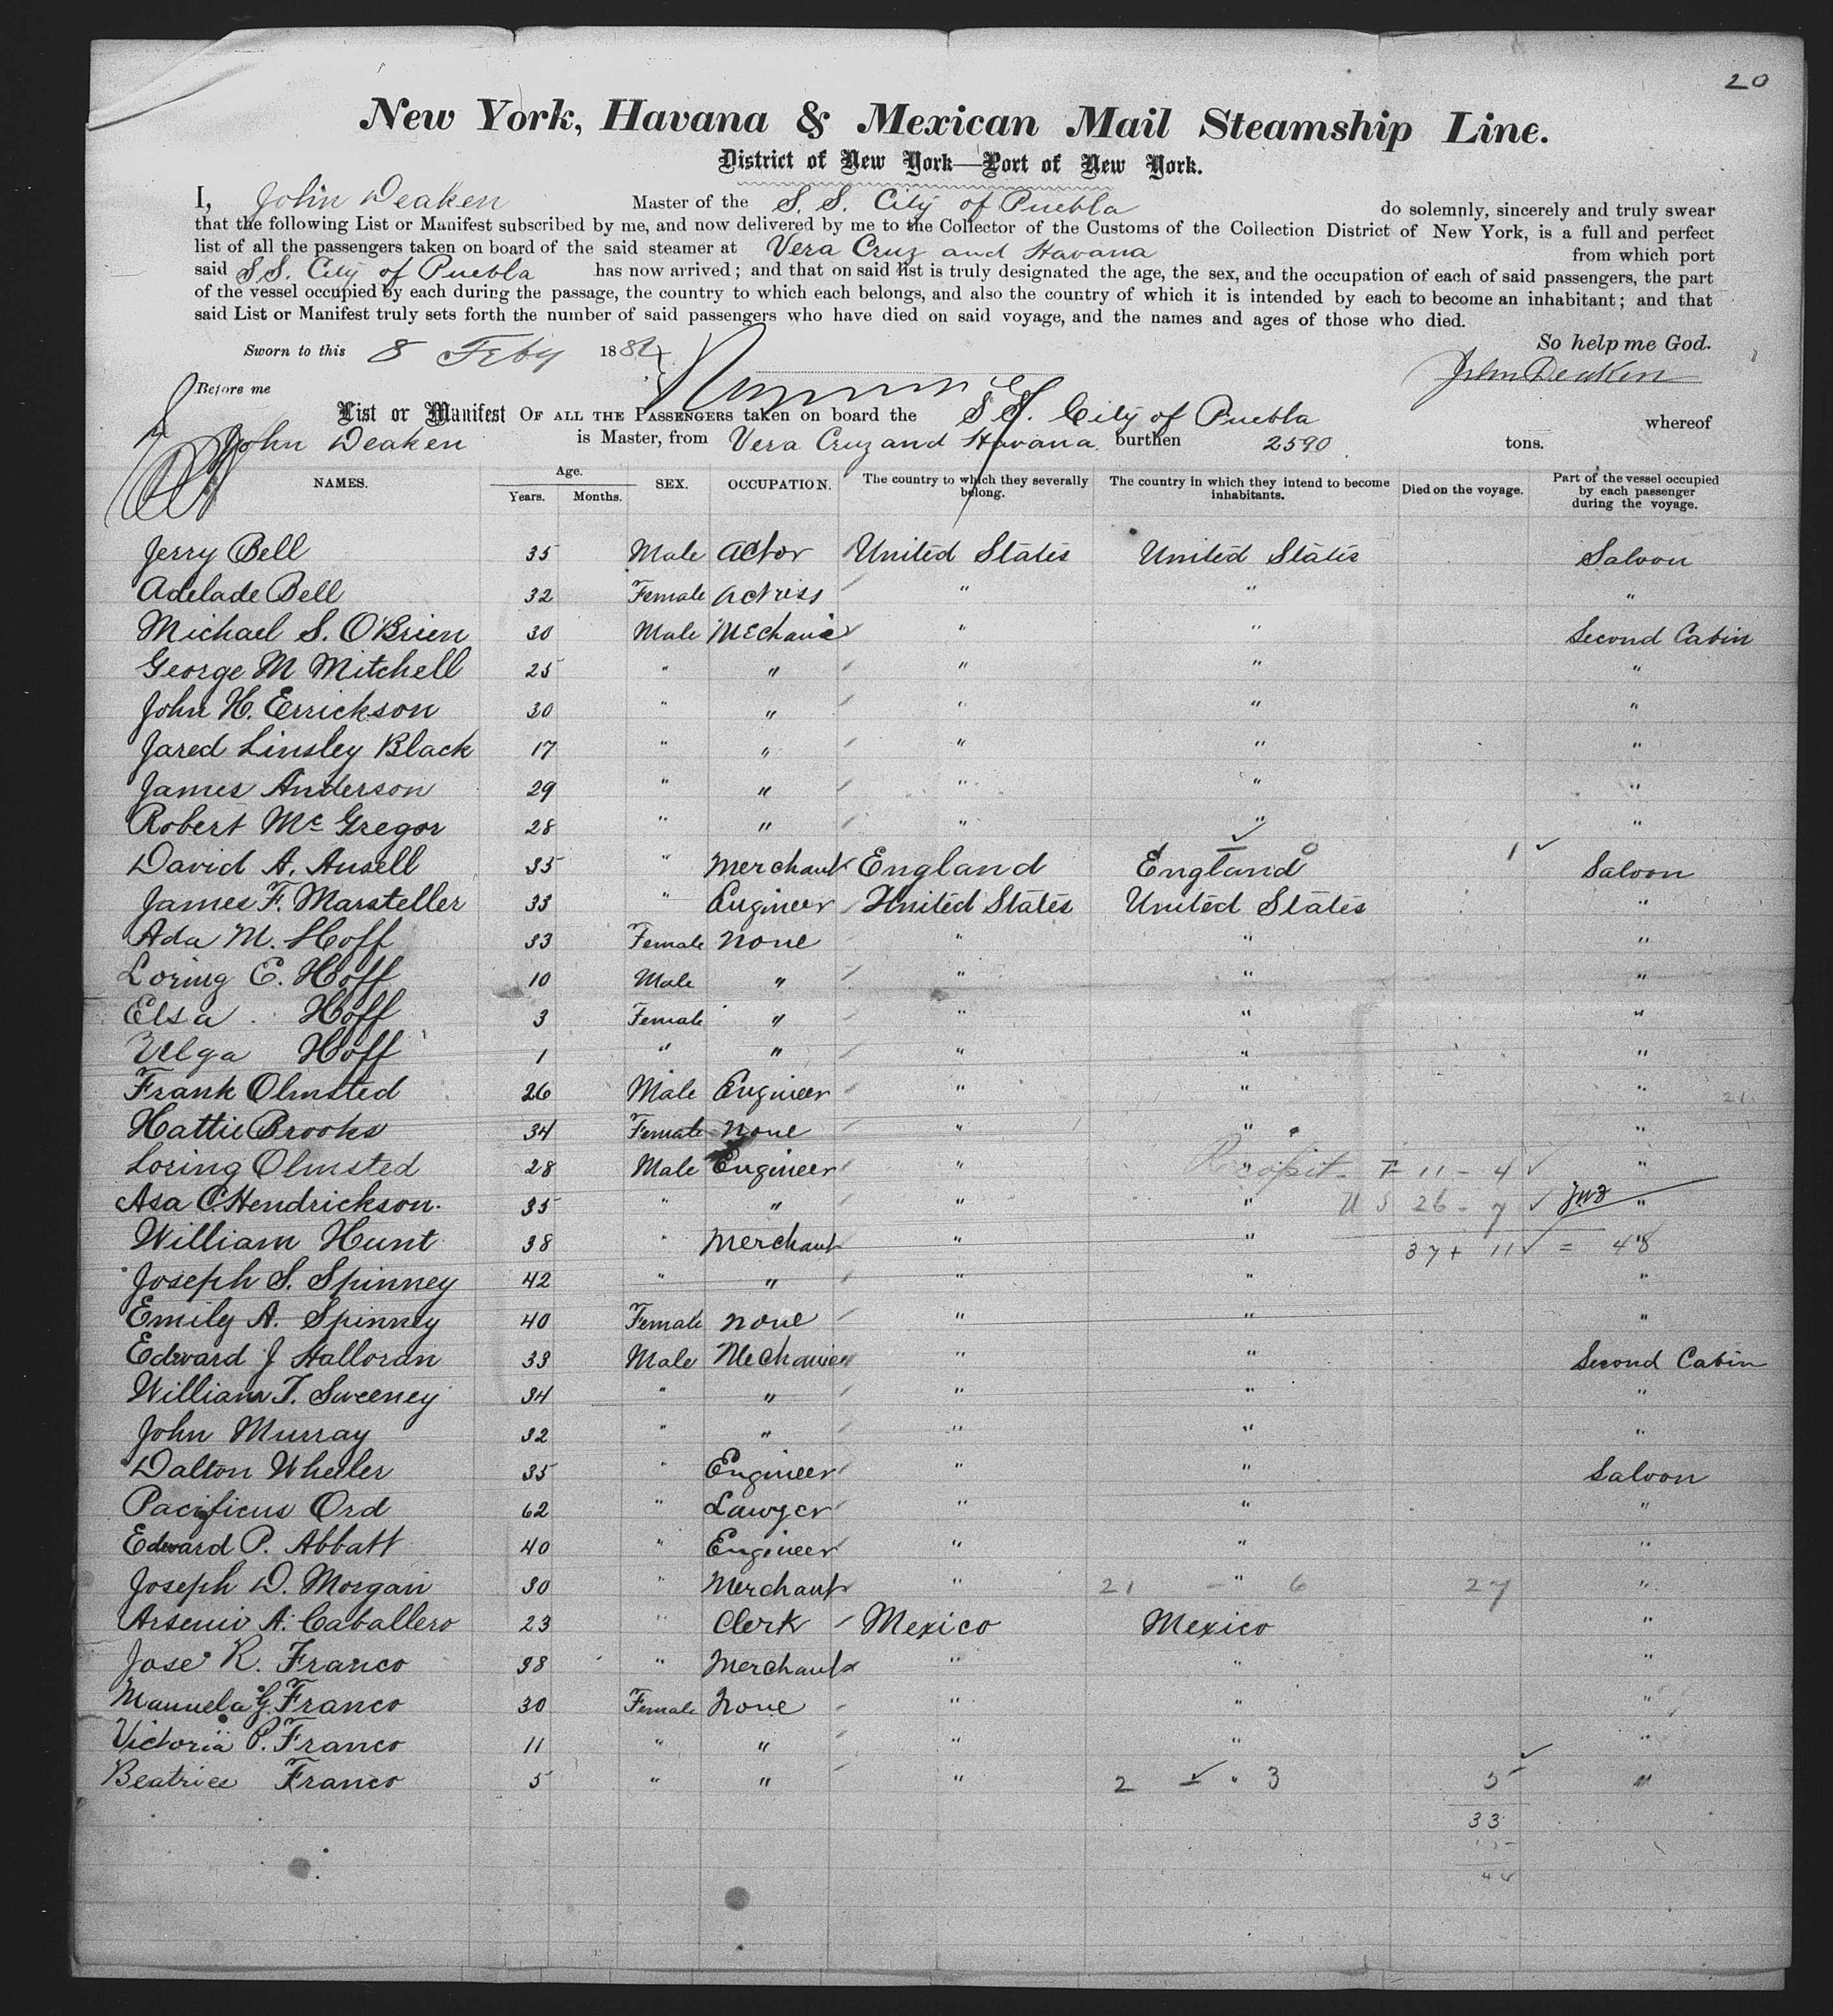 20
New York, Havana & Mexican Mail Steamship Line.
District of New York—Port of New York.
I, John Deaken Master of the S. S. City of Puebla do solemnly, sincerely and truly swear
that the following List or Manifest subscribed by me, and now delivered by me to the Collector of the Customs of the Collection District of New York, is a full and perfect
list of all the passengers taken on board of the said steamer at Vera Cruz and Havana from which port
said S S. City of Puebla has now arrived; and that on said list is truly designated the age, the sex, and the occupation of each of said passengers, the part
of the vessel occupied by each during the passage, the country to which each belongs, and also the country of which it is intended by each to become an inhabitant; and that
said List or Manifest truly sets forth the number of said passengers who have died on said voyage, and the names and ages of those who died.
So help me God.
Sworn to this 8 Feby 1882
John Deaken
Before me
List or Manifest OF ALL THE PASSENGERS taken on board the S S. City of Puebla whereof
John Deaken is Master, from Vera Cruz and Havana burthen 2590 tons.
NAMES. Age. Years. Months. SEX. OCCUPATION. The country to which they severally belong. The country in which they intend to become inhabitants. Died on the voyage. Part of the vessel occupied by each passenger during the voyage.
Jerry Bell 35 Male Actor United States United States Saloon
Adelade Bell 32 Female Actriss " " "
Michael S. O'Brien 30 Male Mechanic " " Second Cabin
George M Mitchell 25 " " " " "
John H. Errickson 30 " " " " "
Jared Linsley Black 17 " " " " "
James Anderson 29 " " " " "
Robert Mc Gregor 28 " " " " "
David A. Ansell 35 " Merchant England England 1 Saloon
James F. Marsteller 33 " Engineer United States United States "
Ada M. Hoff 33 Female None " " "
Loring E. Hoff 10 Male " " " "
Elsa Hoff 3 Female " " " "
Hoff 1 " " " " "
Frank Olmsted 26 Male Engineer " " "
21
Hattie Brooks 34 Female None " " "
Loring Olmsted 28 Male Engineer " " 11 - 4 "
Asa C Hendrickson. 35 " " " " U S 26 - 7 "
William Hunt 38 " Merchant " " 37 + 11 = 48 "
Joseph S. Spinney 42 " " " " "
Emily A. Spinney 40 Female None " " "
Edward J Halloran 33 Male Mechanic " " Second Cabin
William T. Sweeney 34 " " " " "
John Murray 32 " " " " "
Dalton Wheeler 35 " Engineer " " Saloon
Pacificus Ord 62 " Lawyer " " "
Edward P. Abbatt 40 " Engineer " " "
Joseph D. Morgan 30 " Merchant " 21 - " 6 27 "
Arsenio A. Caballero 23 " Clerk Mexico Mexico "
Jose R. Franco 38 " Merchant " " "
Manuela G. Franco 30 Female None " " "
Victoria P. Franco 11 " " " " "
Beatrice Franco 5 " " " 2 - " 3 5 "
33